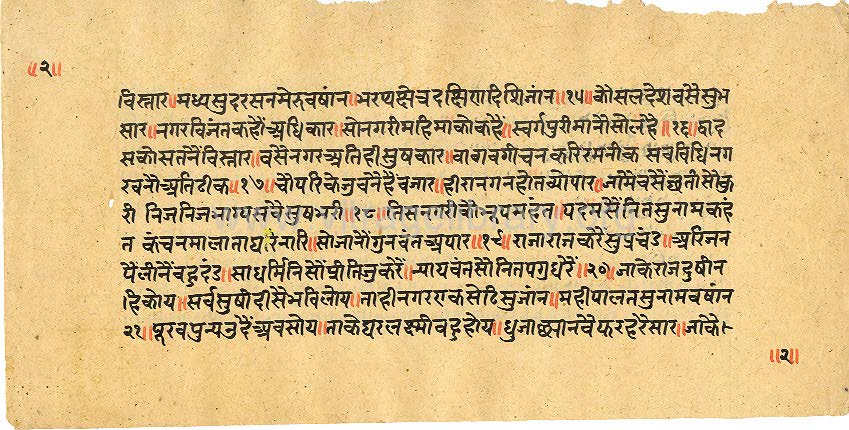 ॥२॥
विस्तार॥मध्यसुदरसनमेरुवषांन॥भरथक्षेत्रदक्षिणादिशिजांन॥१५॥कौसलदेशवसैसुभ
सार॥नगरविजतकहौंअधिकार॥सोनगरीमहिमाकोकहै॥स्वर्गपुरीमानौसोलहै॥१६॥द्वाद
सकोसतनैंविस्तार॥वसैनगरअतिहीसुषकार॥वागवगीचनकरिरमनीक सवविधिनग
रवनौअतिठीक॥१७॥चौपरिकेजुवनैहैवजार॥हीरानगनहोतव्योपार॥जामैवसैंछतीसोकु
री निजनिजभाग्यसवैसुषभरी॥१८॥तिसनगरीकौभूपमहंत॥पदमसैंनितसुनामकहं
त कंचनमालाताघरिनारि॥सोजानौंगुनवंतअपार॥१९॥राजाराजकरैसुप्रचंड॥अरिजन
पैंलीनैंवहुदंड॥साधर्मिनिसौंप्रीतिजुकरैं॥न्यायवंतसौनितपगुधरैं॥२०॥जाकेराजदुषीन
हिकोय॥सर्वसुषीदीसैभविलोय॥ताहीनगरएकसेठिसुजांन॥महीपालतसुनामवषांन
२१॥पूरवपुन्यउदैंअवसोय॥ताकेघरलक्ष्मीवहुहोय॥धुजाछानवेफरहरेसार॥जाकै
॥२॥